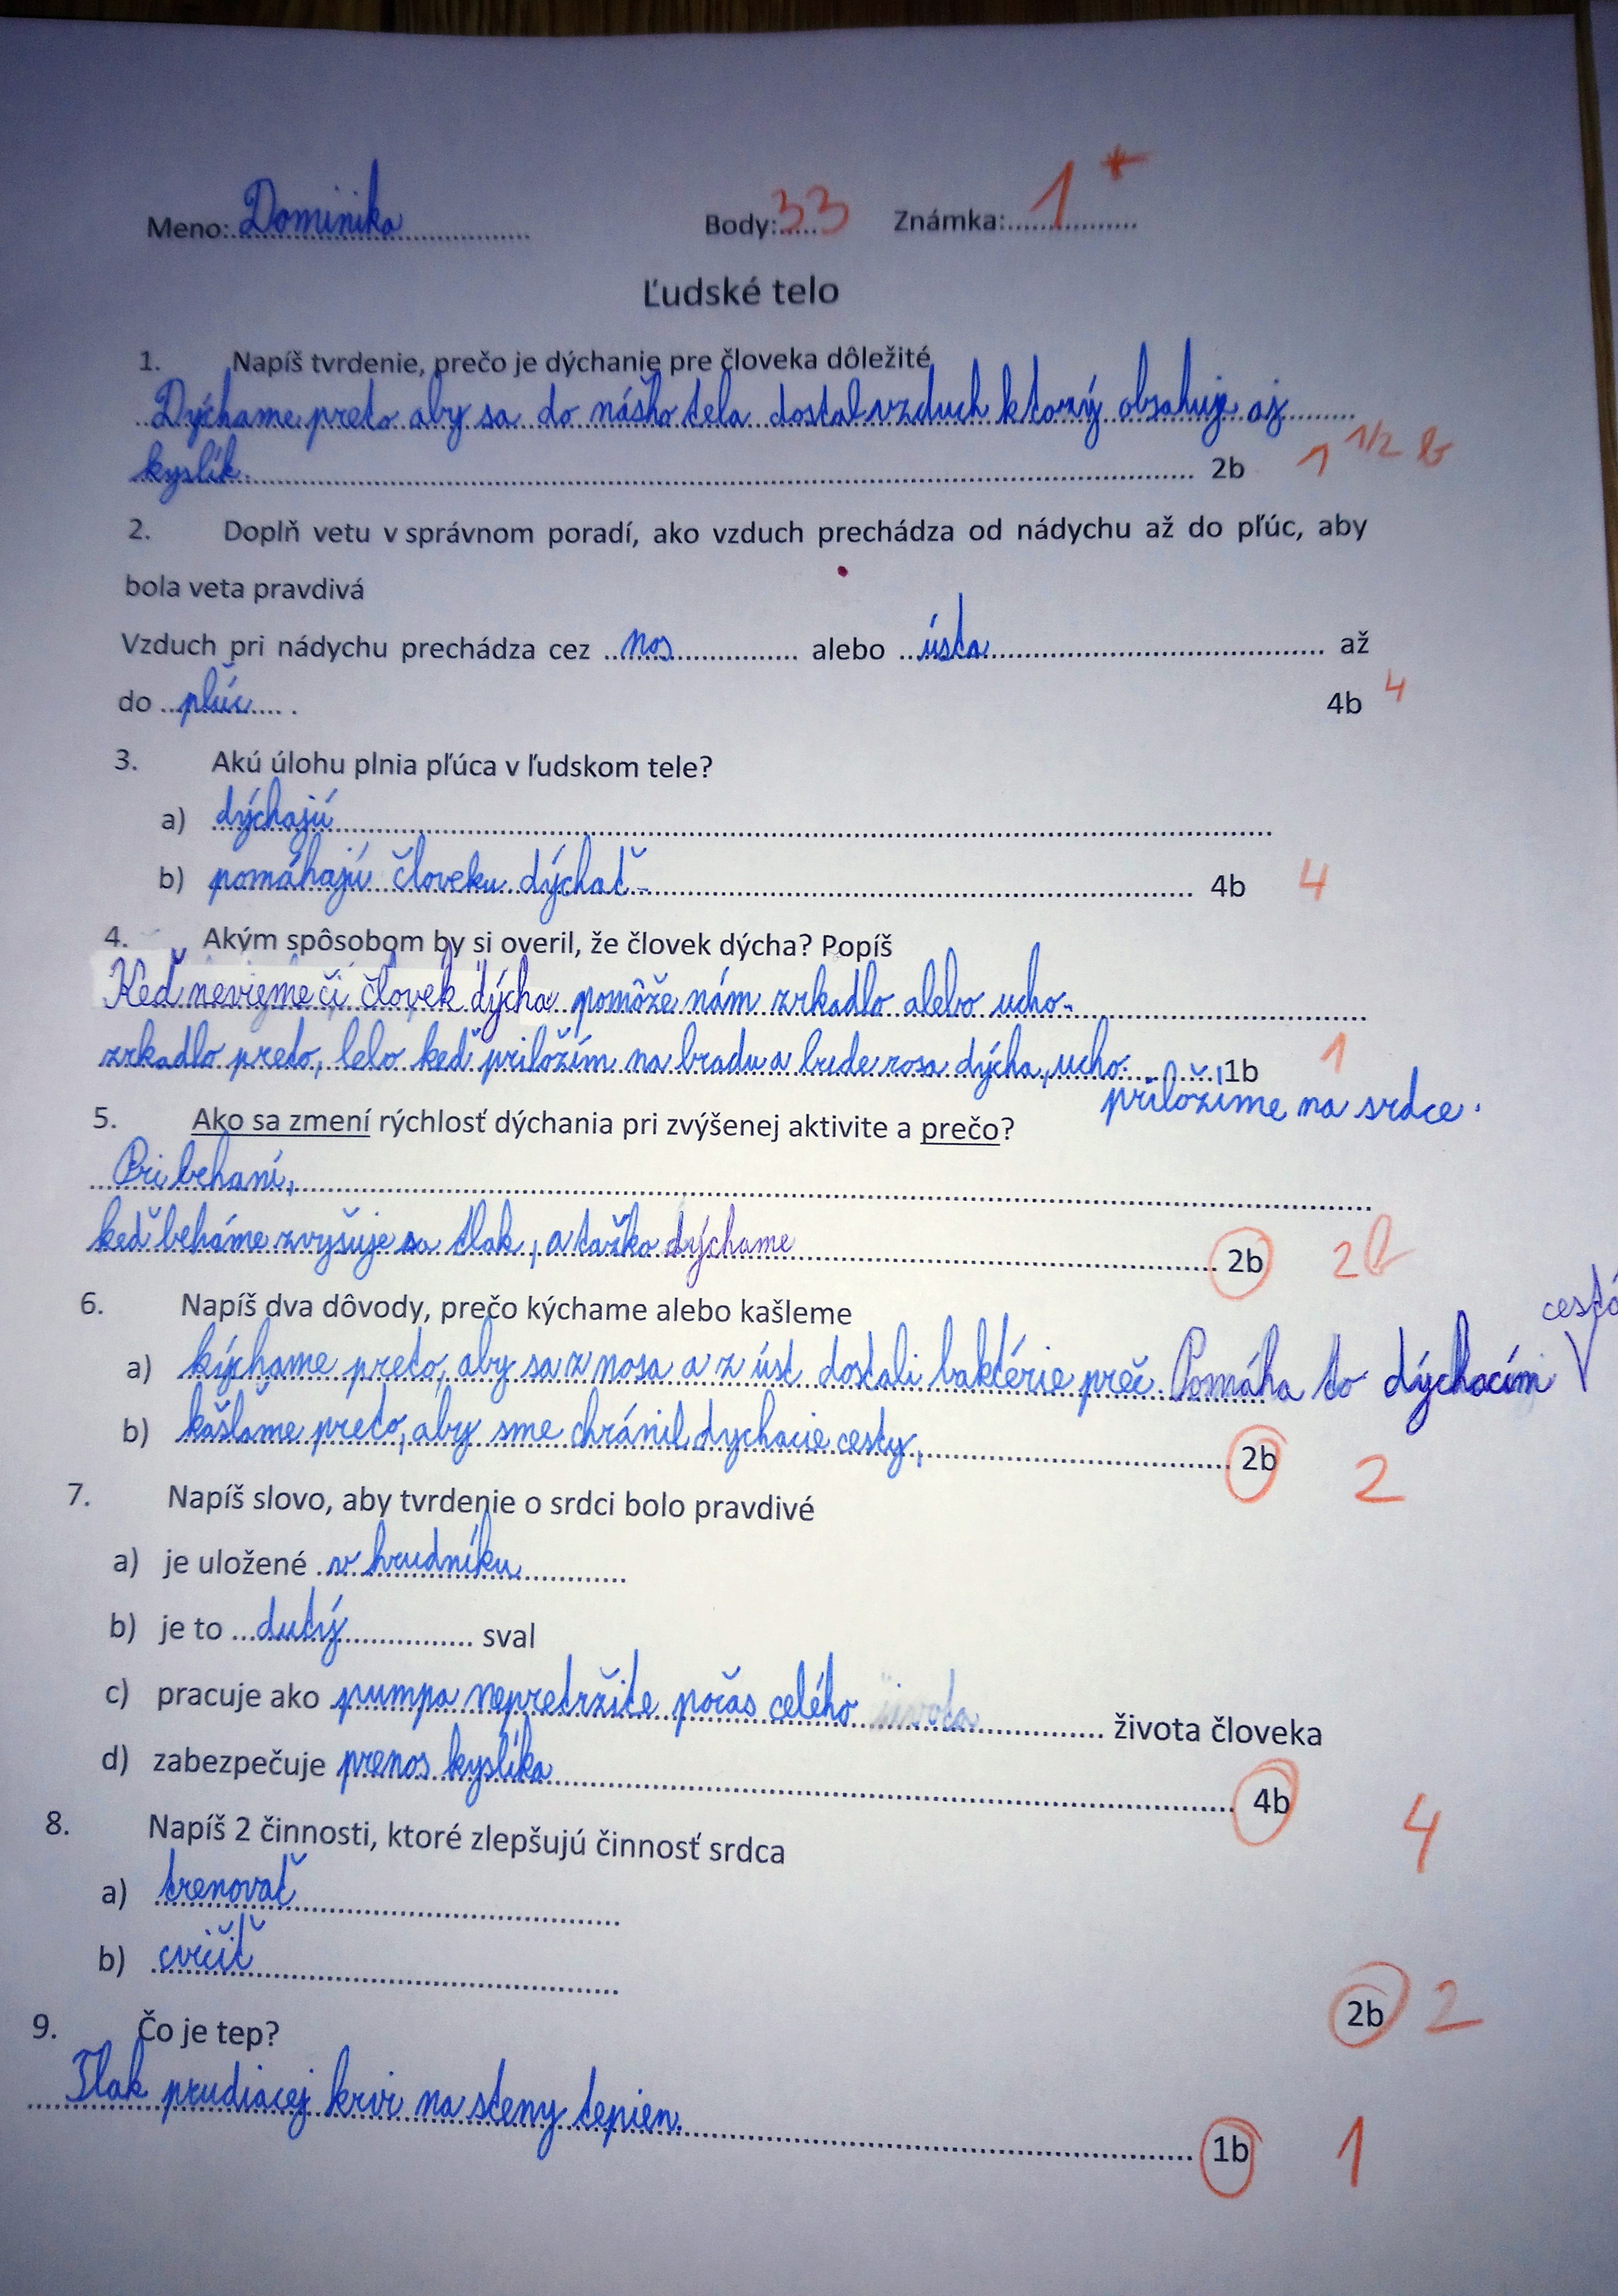 Meno: Dominika Body: 33 Známka: 1*
Ľudské telo
1. Napíš tvrdenie, prečo je dýchanie pre človeka dôležité
Dýchame preto aby sa do nášho tela dostal vzduch ktorý obsahuje aj
kyslík. 2b 1 1/2 b
2. Doplň vetu v správnom poradí, ako vzduch prechádza od nádychu až do pľúc, aby
bola veta pravdivá
Vzduch pri nádychu prechádza cez nos alebo ústa až
do plúc. 4b 4
3. Akú úlohu plnia pľúca v ľudskom tele?
a) dýchajú
b) pomáhajú človeku dýchať 4b 4
4. Akým spôsobom by si overil, že človek dýcha? Popíš
Keď nevieme či človek dýcha pomôže nám zrkadlo alebo ucho-
zrkadlo preto, lebo keď priložím na bradu a bude rosa dýcha, ucho 1b 1
priložíme na srdce.
5. Ako sa zmení rýchlosť dýchania pri zvýšenej aktivite a prečo?
Pri behaní,
keď beháme zvyšuje sa tlak, a ťažko dýchame 2b 2b
6. Napíš dva dôvody, prečo kýchame alebo kašleme
cestá
a) kýchame preto, aby sa z nosa a z úst dostali baktérie preč. Pomáha to dýchacím
b) kašlame preto, aby sme chránil dychacie cesty, 2b 2
7. Napíš slovo, aby tvrdenie o srdci bolo pravdivé
a) je uložené v hrudníku
b) je to dutý sval
c) pracuje ako pumpa nepretržite počas celého života človeka
d) zabezpečuje prenos kyslíka 4b 4
8. Napíš 2 činnosti, ktoré zlepšujú činnosť srdca
a) trenovať
b) cvičiť
2b 2
9. Čo je tep?
Tlak prudiacej krvi na steny tepien. 1b 1